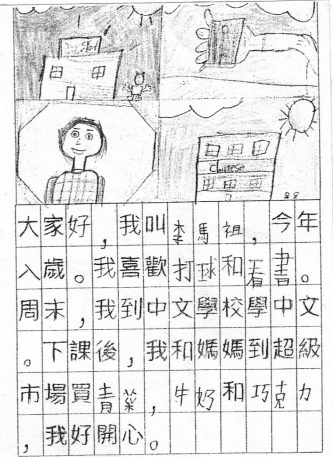 Chinese
大家好,我叫李馬祖,今年
入歲。我喜歡打球和看書。
周末,我到中文學校學中文
。下課後,我和媽媽到超級
市場買青菜,牛奶和巧克力
,我好開心。